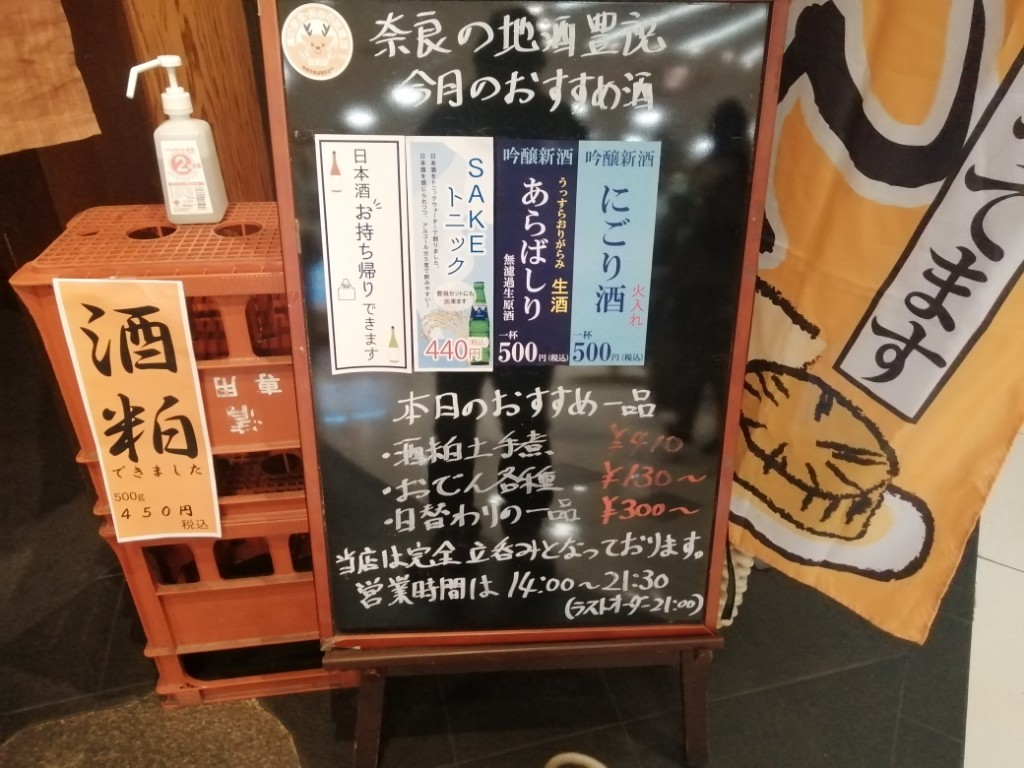 奈良の地酒豊祝
今月のおすすめ酒
日本酒お持ち帰りできます
SAKE
トニック
日本酒をトニックウォーターで割りました。
豊祝セットにも
出来ます
440円(税込)
吟醸新酒
うっすらおりがらみ 生酒
あらばしり
無濾過生原酒
一杯
500円(税込)
吟醸新酒
にごり酒
火入れ
一杯
500円(税込)
本日のおすすめ一品
・酒粕土手煮 ¥410
・おでん各種 ¥130～
・日替わりの一品 ¥300～
当店は完全立呑みとなっております。
営業時間は 14:00～21:30
(ラストオーダー21:00)
酒粕
できました
500g
450円
税込
清
専用
2
ってます